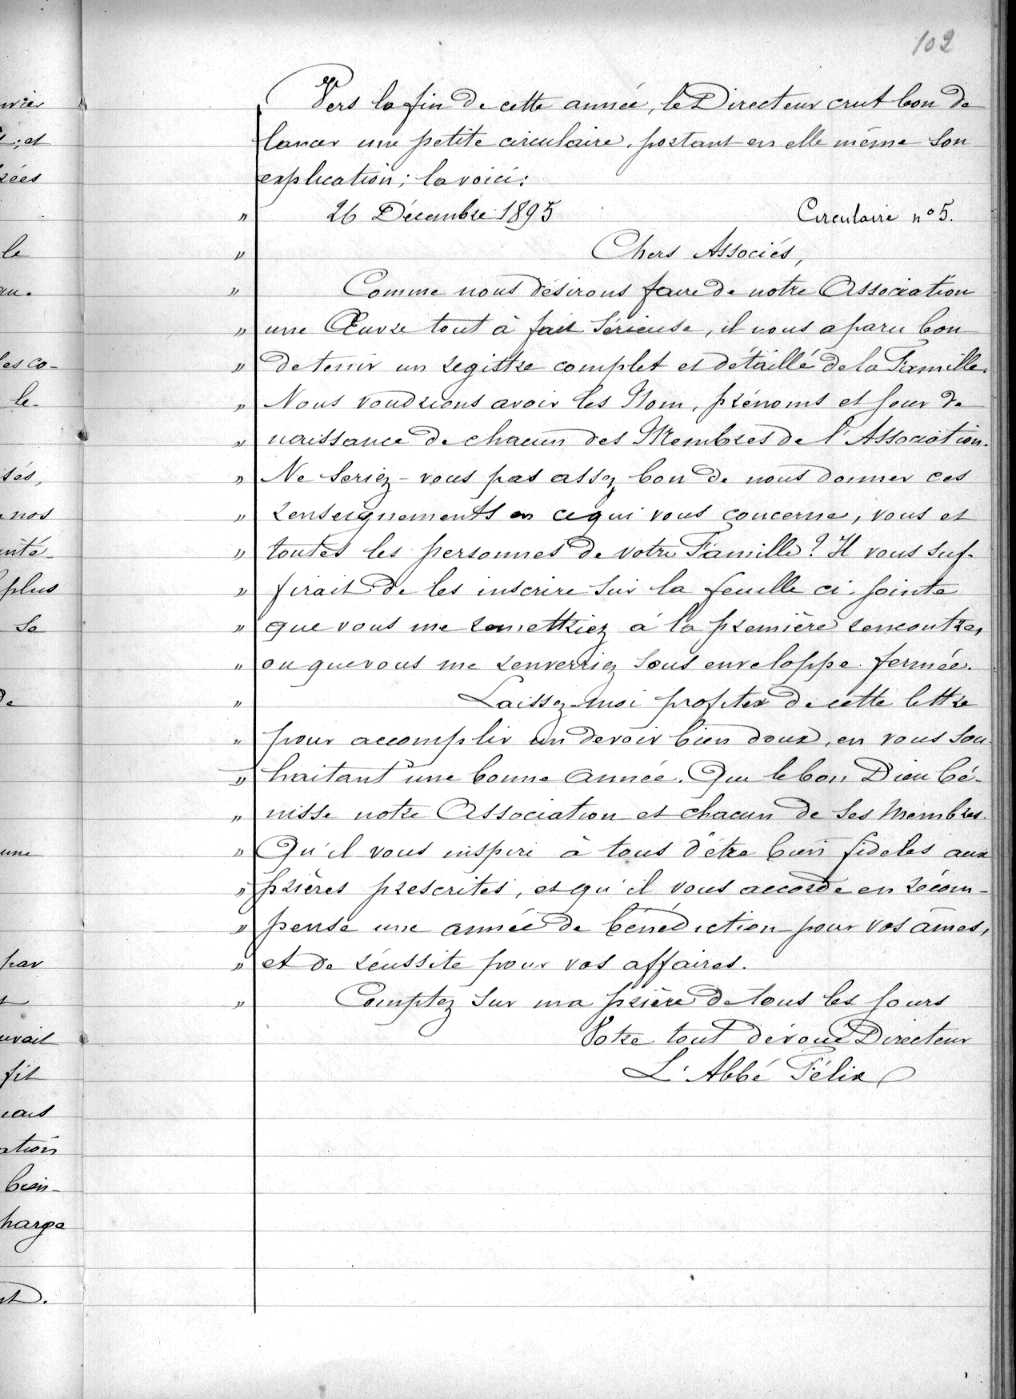 102
Vers la fin de cette année, le Directeur crut bon de
lancer une petite circulaire, portant en elle même son
explication; la voici:
" 26 Décembre 1895 Circulaire n° 5.
" Chers Associés,
" Comme nous désirons faire de notre Association
" une Œuvre tout à fait sérieuse, il nous a paru bon
" de tenir un registre complet et détaillé de la Famille.
" Nous voudrions avoir les Nom, prénoms et jour de
" naissance de chacun des Membres de l'Association.
" Ne seriez-vous pas assez bon de nous donner ces
" renseignements en ce qui vous concerne, vous et
" toutes les personnes de votre Famille? Il vous suf-
" firait de les inscrire sur la feuille ci-jointe
" que vous me remettriez à la première rencontre,
" ou que vous me renverriez sous enveloppe fermée.
" Laissez-moi profiter de cette lettre
" pour accomplir un devoir bien doux, en vous sou-
" haitant une bonne année. Que le bon Dieu bé-
" nisse notre Association et chacun de ses Membres.
" Qu'il vous inspire à tous d'être bien fidèles aux
" prières prescrites, et qu'il vous accorde en récom-
" pense une année de bénédiction pour vos âmes,
" et de réussite pour vos affaires.
" Comptez sur ma prière de tous les jours
Votre tout dévoué Directeur
L'Abbé Félix